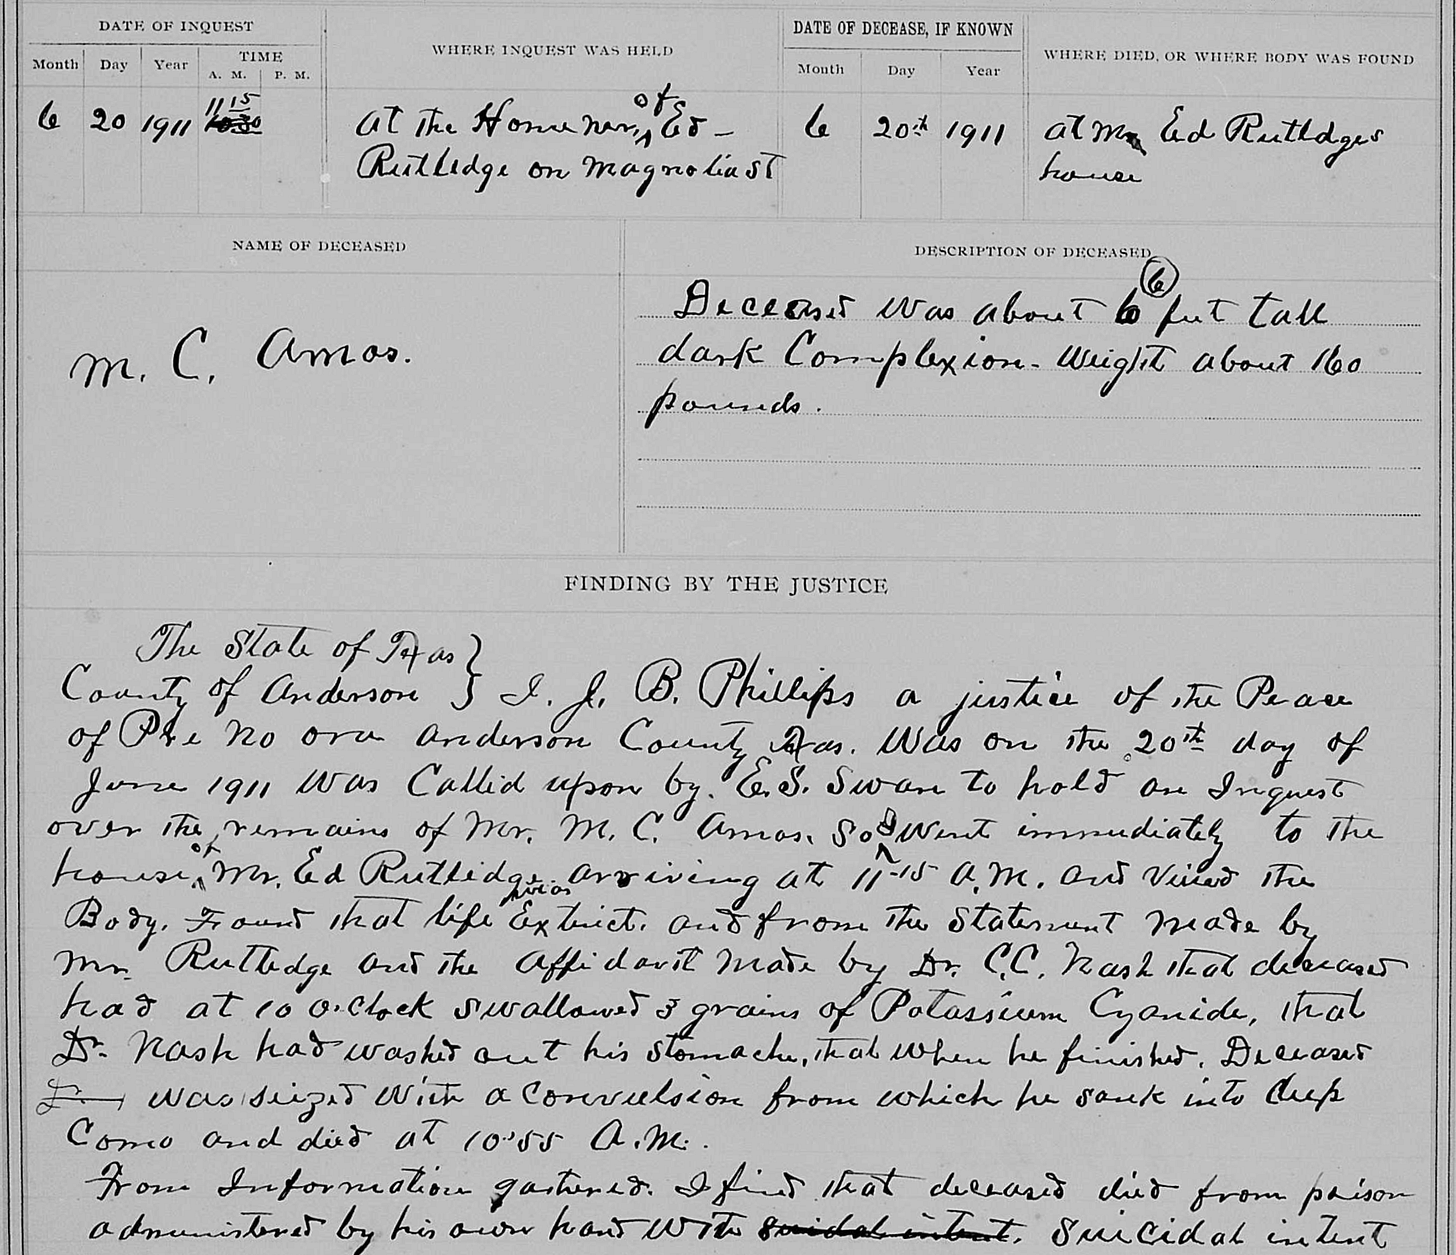 DATE OF INQUEST
WHERE INQUEST WAS HELD
DATE OF DECEASE, IF KNOWN
WHERE DIED, OR WHERE BODY WAS FOUND
Month Day Year TIME A. M. P. M.
Month Day Year
6 20 1911 11 15 10 30
at the Home of Ed
Rutledge on Magnolia St
6 20th 1911
at Mr Ed Rutledges
house
NAME OF DECEASED
M. C. Amos.
DESCRIPTION OF DECEASED
6
Deceased was about 6 feet tall
dark Complexion - Weight about 160
pounds.
FINDING BY THE JUSTICE
The State of Texas }
County of Anderson } I. J. B. Phillips a justice of the Peace
of Pre No one Anderson County Texas. Was on the 20th day of
June 1911 was Called upon by. E.S. Swan to hold an Inquest
over the remains of Mr. M. C. Amos. So I Went immediately to the
house of Mr. Ed Rutledge. arriving at 11-15 A.M. and viewed the
Body. Found that life was Extinct. and from the Statement made by
Mr. Rutledge and the affidavit made by Dr. C.C. Nash that deceased
had at 10 o.clock swallowed 3 grains of Potassium Cyanide, that
Dr. Nash had washed out his stomache, that when he finished. Deceased
was seized with a convulsion from which he sank into deep
Como and died at 10:55 A.M.
From Information gathered. I find that deceased died from poison
administered by his own hand with suicidal intent. Suicidal intent